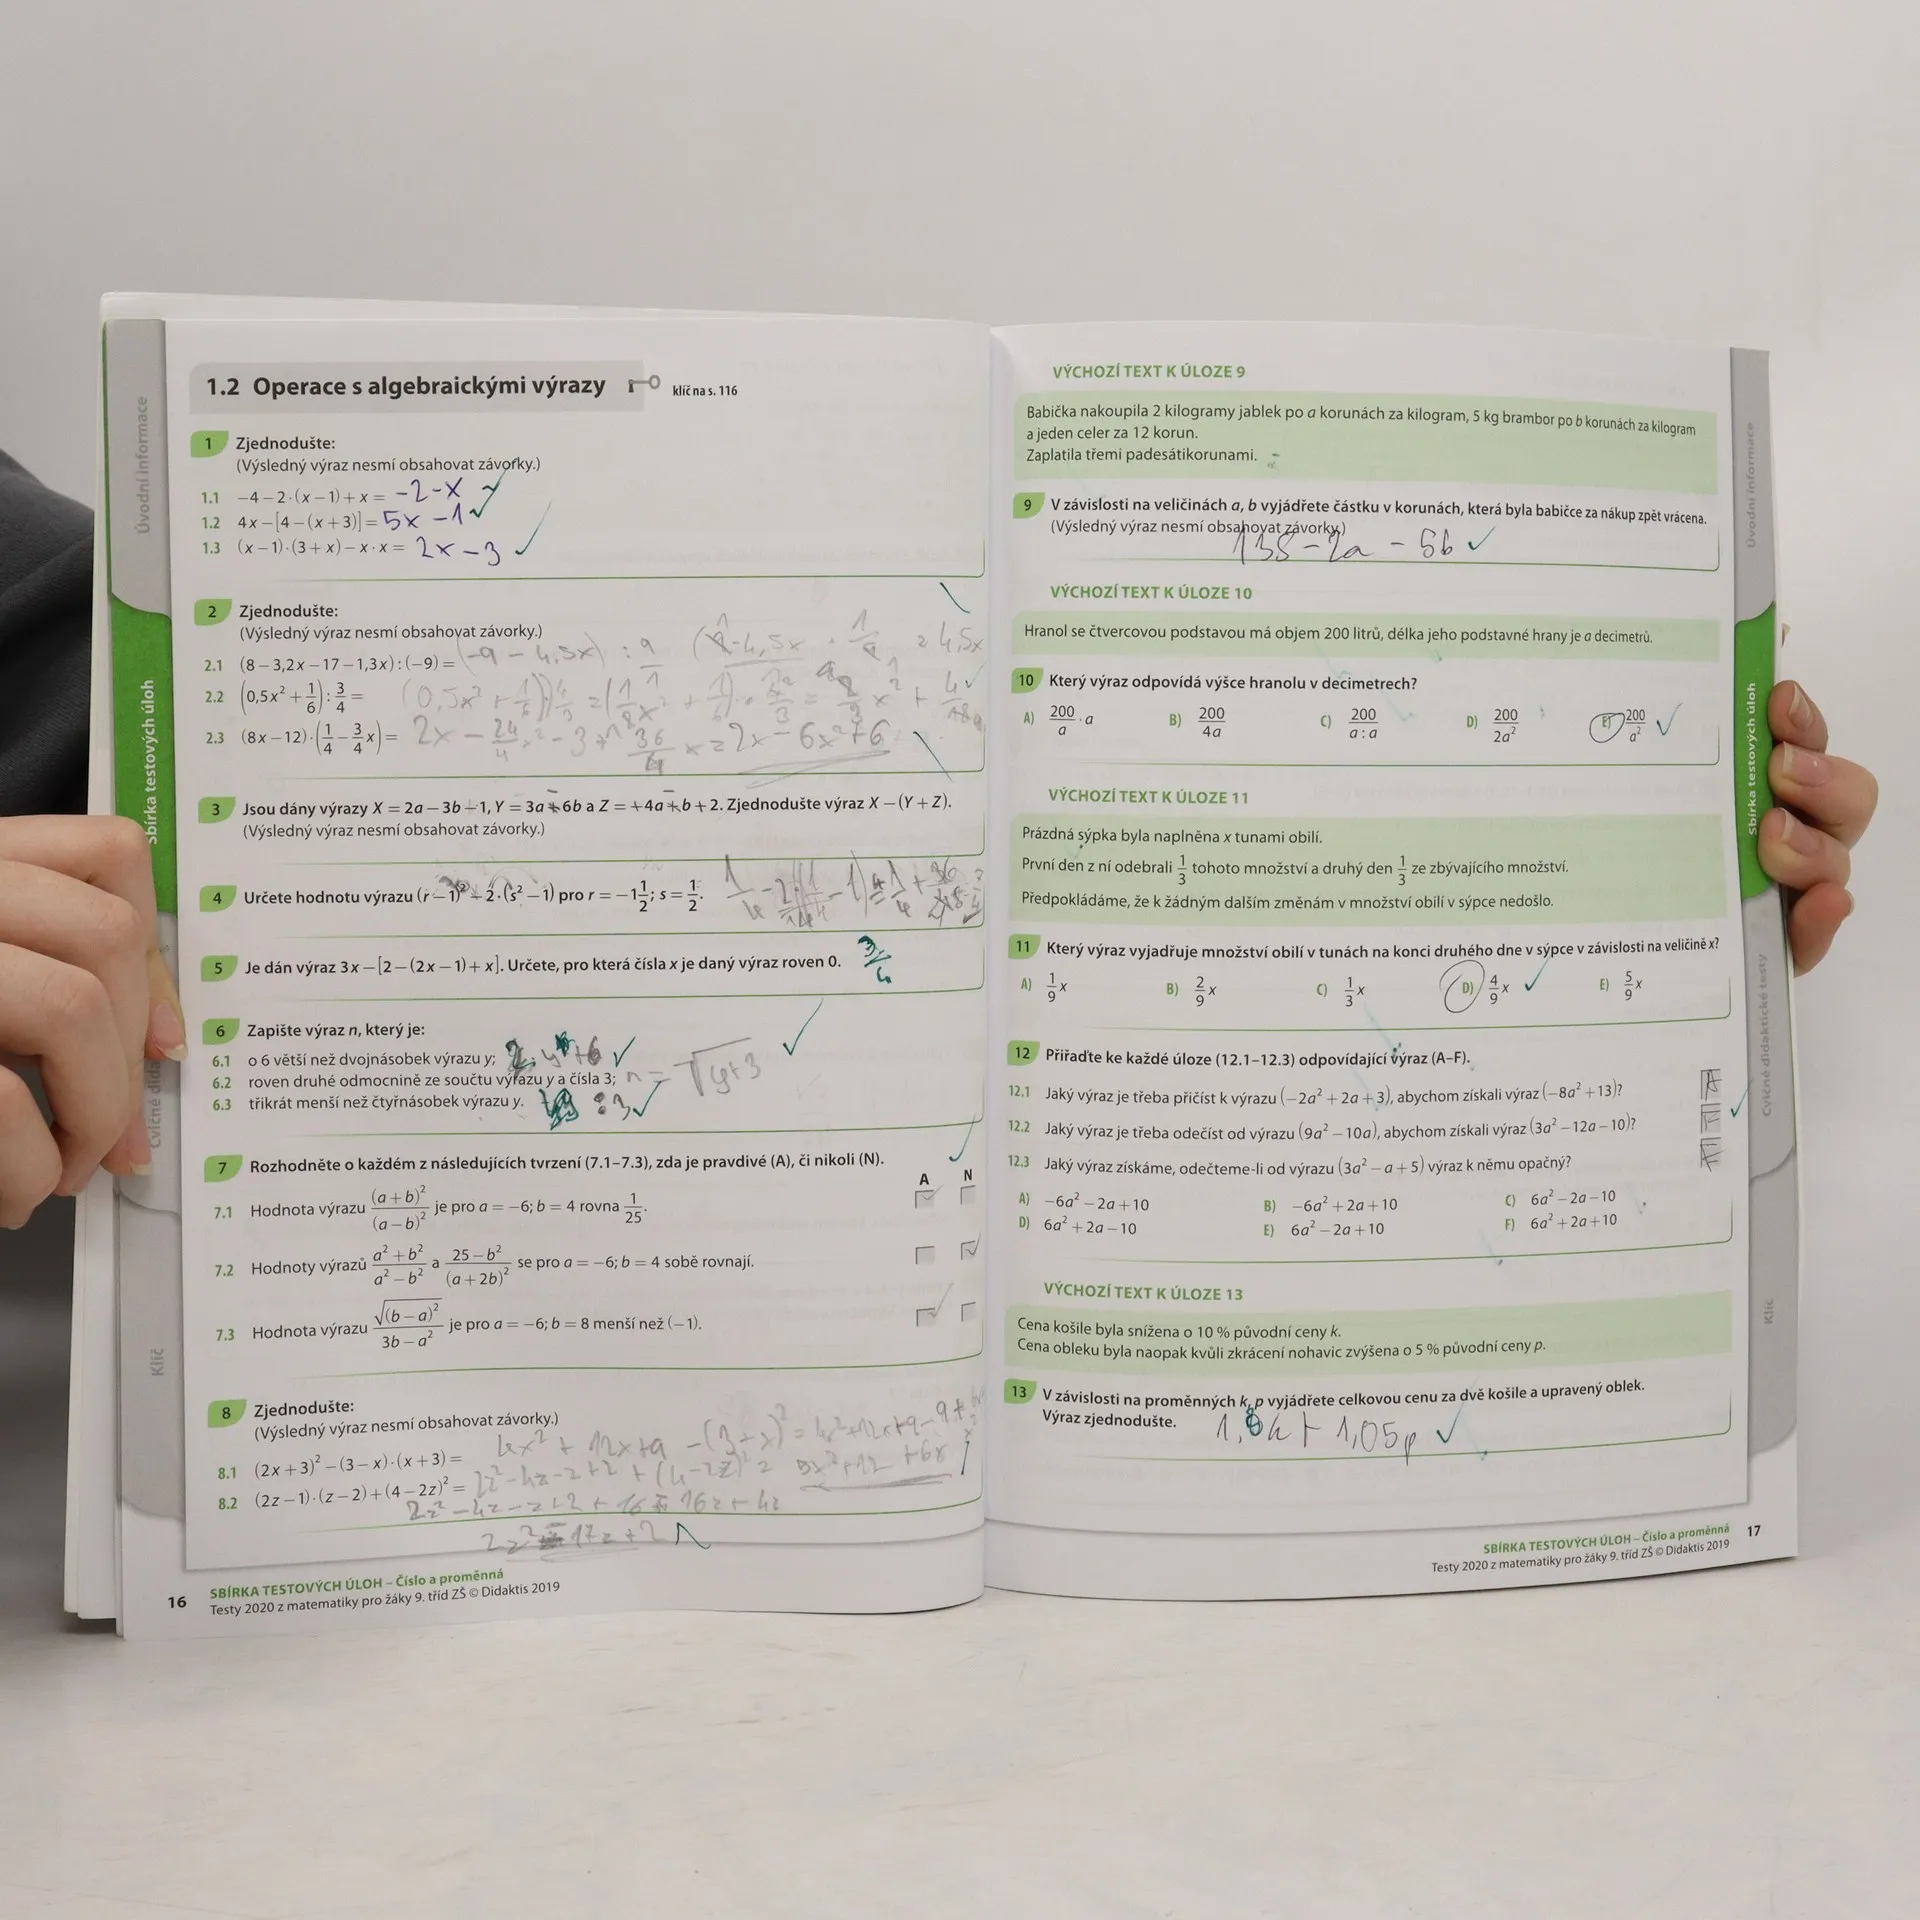 Úvodní informace
Sbírka testových úloh
Cvičné dida
Klíč
1.2 Operace s algebraickými výrazy klíč na s. 116
1 Zjednodušte:
(Výsledný výraz nesmí obsahovat závorky.)
1.1 −4 − 2·(x − 1) + x = -2-x
1.2 4x − [4 − (x + 3)] = 5x -1
1.3 (x − 1)·(3 + x) − x·x = 2x - 3
2 Zjednodušte:
(Výsledný výraz nesmí obsahovat závorky.)
2.1 (8 − 3,2x − 17 − 1,3x) : (−9) = (-9 - 4,5x) : 9
2.2 (0,5x² + 1/6) : 3/4 =
2.3 (8x − 12)·(1/4 − 3/4 x) = 2x - 24/4 x² - 3 + 36/4 x = 2x - 6x² + 6
3 Jsou dány výrazy X = 2a − 3b − 1, Y = 3a + 6b a Z = +4a + b + 2. Zjednodušte výraz X − (Y + Z).
(Výsledný výraz nesmí obsahovat závorky.)
4 Určete hodnotu výrazu (r − 1)² − 2·(s² − 1) pro r = −1 1/2; s = 1/2.
5 Je dán výraz 3x − [2 − (2x − 1) + x]. Určete, pro která čísla x je daný výraz roven 0. 3/4
6 Zapište výraz n, který je:
6.1 o 6 větší než dvojnásobek výrazu y; 2·y+6
6.2 roven druhé odmocnině ze součtu výrazu y a čísla 3; n = √y+3
6.3 třikrát menší než čtyřnásobek výrazu y. :3
7 Rozhodněte o každém z následujících tvrzení (7.1–7.3), zda je pravdivé (A), či nikoli (N).
A N
7.1 Hodnota výrazu (a + b)²/(a − b)² je pro a = −6; b = 4 rovna 1/25.
7.2 Hodnoty výrazů (a² + b²)/(a² − b²) a (25 − b²)/(a + 2b)² se pro a = −6; b = 4 sobě rovnají.
7.3 Hodnota výrazu √(b − a)²/(3b − a²) je pro a = −6; b = 8 menší než (−1).
8 Zjednodušte:
(Výsledný výraz nesmí obsahovat závorky.)
8.1 (2x + 3)² − (3 − x)·(x + 3) = 4x² + 12x+9 -(3+x)² = 4x²+12x+9-9+
8.2 (2z − 1)·(z − 2) + (4 − 2z)² = 2z²-4z-z+2 + (4-2z)² =
2z² - 4z - z + 2 + 16
16 SBÍRKA TESTOVÝCH ÚLOH – Číslo a proměnná
Testy 2020 z matematiky pro žáky 9. tříd ZŠ © Didaktis 2019
VÝCHOZÍ TEXT K ÚLOZE 9
Babička nakoupila 2 kilogramy jablek po a korunách za kilogram, 5 kg brambor po b korunách za kilogram
a jeden celer za 12 korun.
Zaplatila třemi padesátikorunami.
9 V závislosti na veličinách a, b vyjádřete částku v korunách, která byla babičce za nákup zpět vrácena.
(Výsledný výraz nesmí obsahovat závorky.)
138 - 2a - 5b
VÝCHOZÍ TEXT K ÚLOZE 10
Hranol se čtvercovou podstavou má objem 200 litrů, délka jeho podstavné hrany je a decimetrů.
10 Který výraz odpovídá výšce hranolu v decimetrech?
A) 200/a · a B) 200/4a C) 200/a : a D) 200/2a² E) 200/a²
VÝCHOZÍ TEXT K ÚLOZE 11
Prázdná sýpka byla naplněna x tunami obilí.
První den z ní odebrali 1/3 tohoto množství a druhý den 1/3 ze zbývajícího množství.
Předpokládáme, že k žádným dalším změnám v množství obilí v sýpce nedošlo.
11 Který výraz vyjadřuje množství obilí v tunách na konci druhého dne v sýpce v závislosti na veličině x?
A) 1/9 x B) 2/9 x C) 1/3 x D) 4/9 x E) 5/9 x
12 Přiřaďte ke každé úloze (12.1–12.3) odpovídající výraz (A–F).
12.1 Jaký výraz je třeba přičíst k výrazu (−2a² + 2a + 3), abychom získali výraz (−8a² + 13)? A
12.2 Jaký výraz je třeba odečíst od výrazu (9a² − 10a), abychom získali výraz (3a² − 12a − 10)?
12.3 Jaký výraz získáme, odečteme-li od výrazu (3a² − a + 5) výraz k němu opačný?
A) −6a² − 2a + 10 B) −6a² + 2a + 10 C) 6a² − 2a − 10
D) 6a² + 2a − 10 E) 6a² − 2a + 10 F) 6a² + 2a + 10
VÝCHOZÍ TEXT K ÚLOZE 13
Cena košile byla snížena o 10 % původní ceny k.
Cena obleku byla naopak kvůli zkrácení nohavic zvýšena o 5 % původní ceny p.
13 V závislosti na proměnných k, p vyjádřete celkovou cenu za dvě košile a upravený oblek.
Výraz zjednodušte. 1,8k + 1,05p
SBÍRKA TESTOVÝCH ÚLOH – Číslo a proměnná 17
Testy 2020 z matematiky pro žáky 9. tříd ZŠ © Didaktis 2019
Úvodní informace
Sbírka testových úloh
Cvičné didaktické testy
Klíč